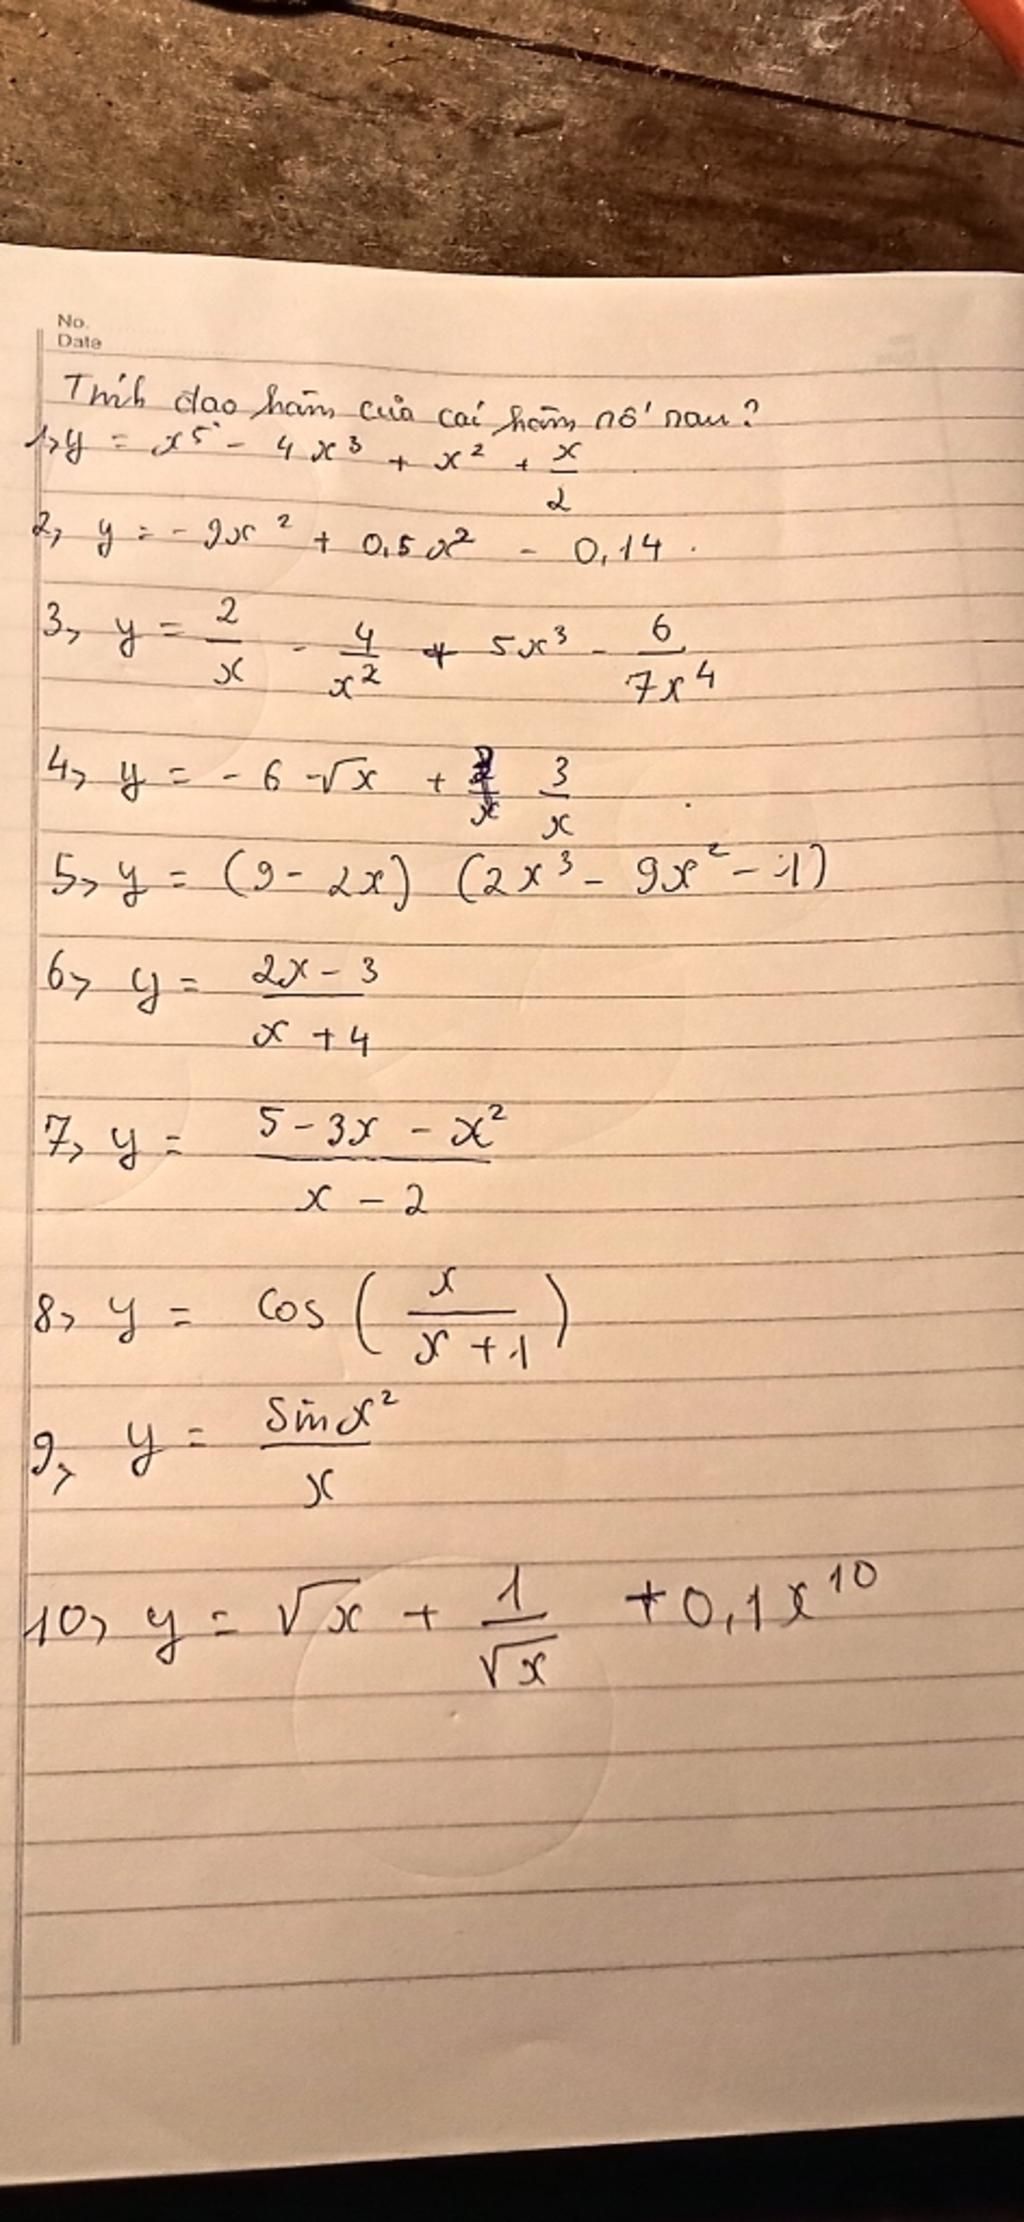 No.
Date
Tính đạo hàm của các hàm số sau?
1, y = x⁵ - 4x³ + x² + x/2
2, y = -9x² + 0,5x² - 0,14.
3, y = 2/x - 4/x² + 5x³ - 6/7x⁴
4, y = -6√x + 3/x
5, y = (9 - 2x) (2x³ - 9x² - 1)
6, y = 2x - 3 / x + 4
7, y = 5 - 3x - x² / x - 2
8, y = cos (x / x + 1)
9, y = sin x² / x
10, y = √x + 1/√x + 0,1x¹⁰